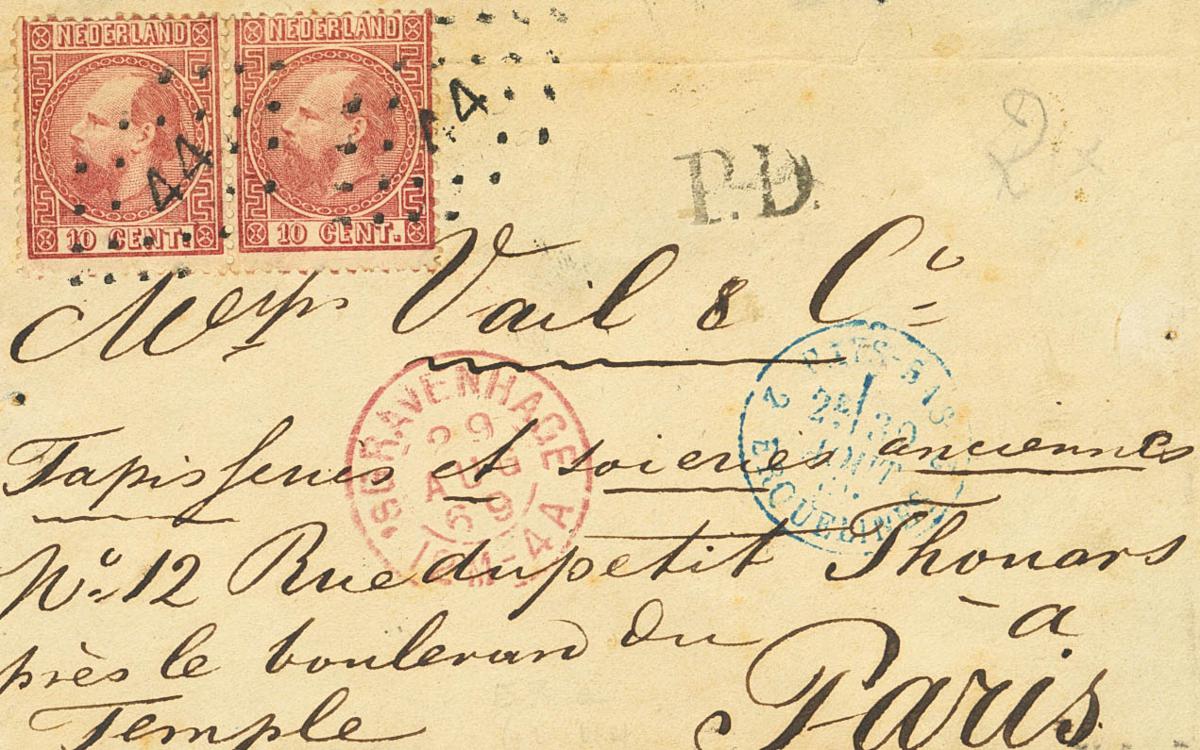 NEDERLAND NEDERLAND
44 44
10 CENT. 10 CENT.
P.D.
Vail & Co
'SGRAVENHAGE
29
AUG
69
PAYS-BAS
2
2E 30
AOUT
Tapisseries et soieries anciennes
No. 12 Rue du petit Thouars
près le boulevard du
Temple
à
Paris